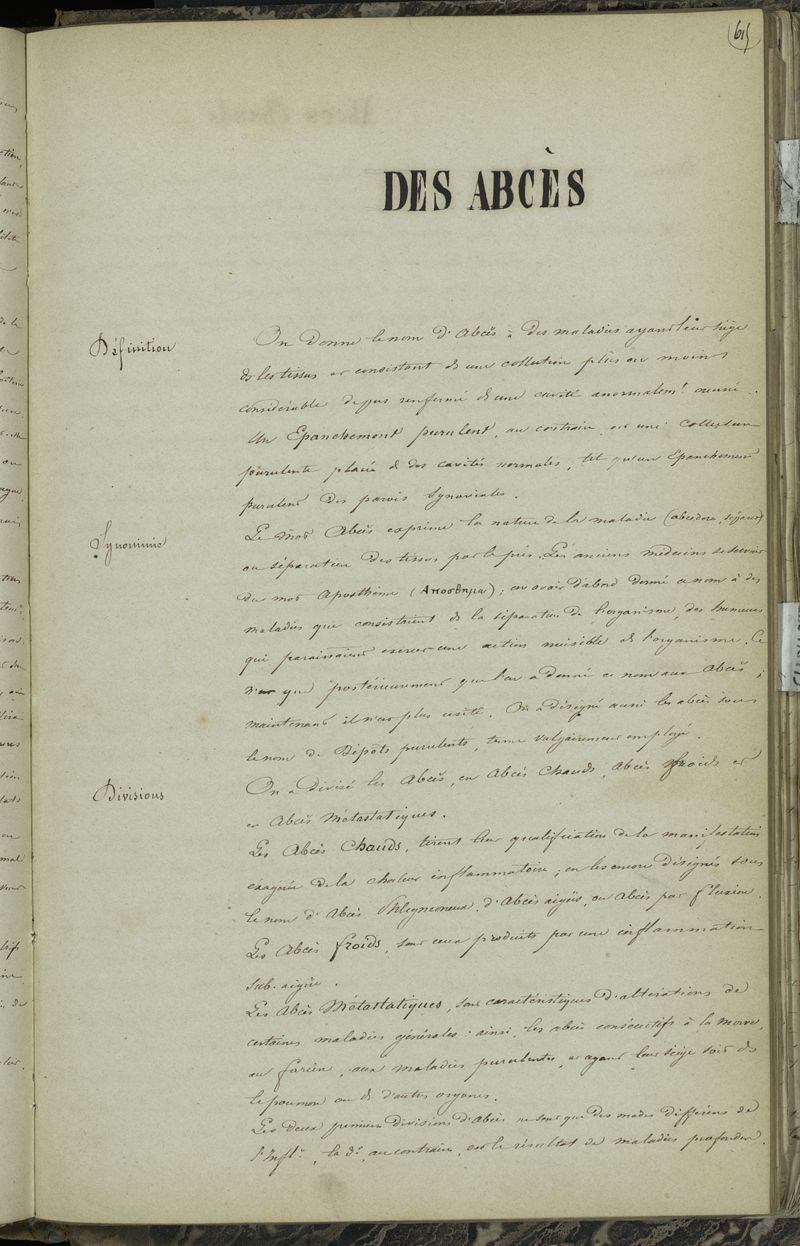 615
DES ABCÈS
Définition
On donne le nom d'Abcès à des maladies ayant leur siége
ds les tissus et consistant ds une collection plus ou moins
considérable de pus renfermé ds une cavité anormalemt creusée.
Un Epanchement purulent, au contraire est une collection
purulente placée ds des cavités normales, tel qu'un Epanchement
purulent des parois Synoviales.
Synonimie
Le mot Abcès exprime la nature de la maladie (abcedere, séjour)
ou séparation des tissus par le pus. Les anciens médecins se servaient
du mot Aposthème (Αποσθημα); on avait d'abord donné ce nom à des
maladies que consistaient ds la séparation de l'organisme, des humeurs
qui paraissaient exercer une action nuisible ds l'organisme. Ce
n'est que postérieurement que l'on a donné ce nom aux Abcès;
maintenant il n'est plus usité. On a désigné aussi les abcès sous
le nom de Dépôts purulents, terme vulgairement employé.
Divisions
On a divisé les Abcès, en Abcès Chauds, Abcès froids et
en Abcès Métastatiques.
Les Abcès Chauds, tirent leur qualification de la manifestation
exagérée de la chaleur inflammatoire; on les encore désignés sous
le nom d'Abcès Phlegmoneux, d'Abcès aigüs, ou Abcès par fluxion.
Les Abcès froids, sont ceux produits par une inflammation
Sub-aigüe.
Les Abcès Métastatiques, sont caractéristiques d'altérations de
certaines maladies générales: ainsi, les abcès consécutifs à la morve,
au farcin, aux maladies purulentes, et ayant leur siége soit ds
le poumon ou ds d'autres organes.
Les deux premières divisions d'Abcès ne sont que des modes différens de
l'Inflon, la 3e, au contraire, est le résultat de maladies profondes.